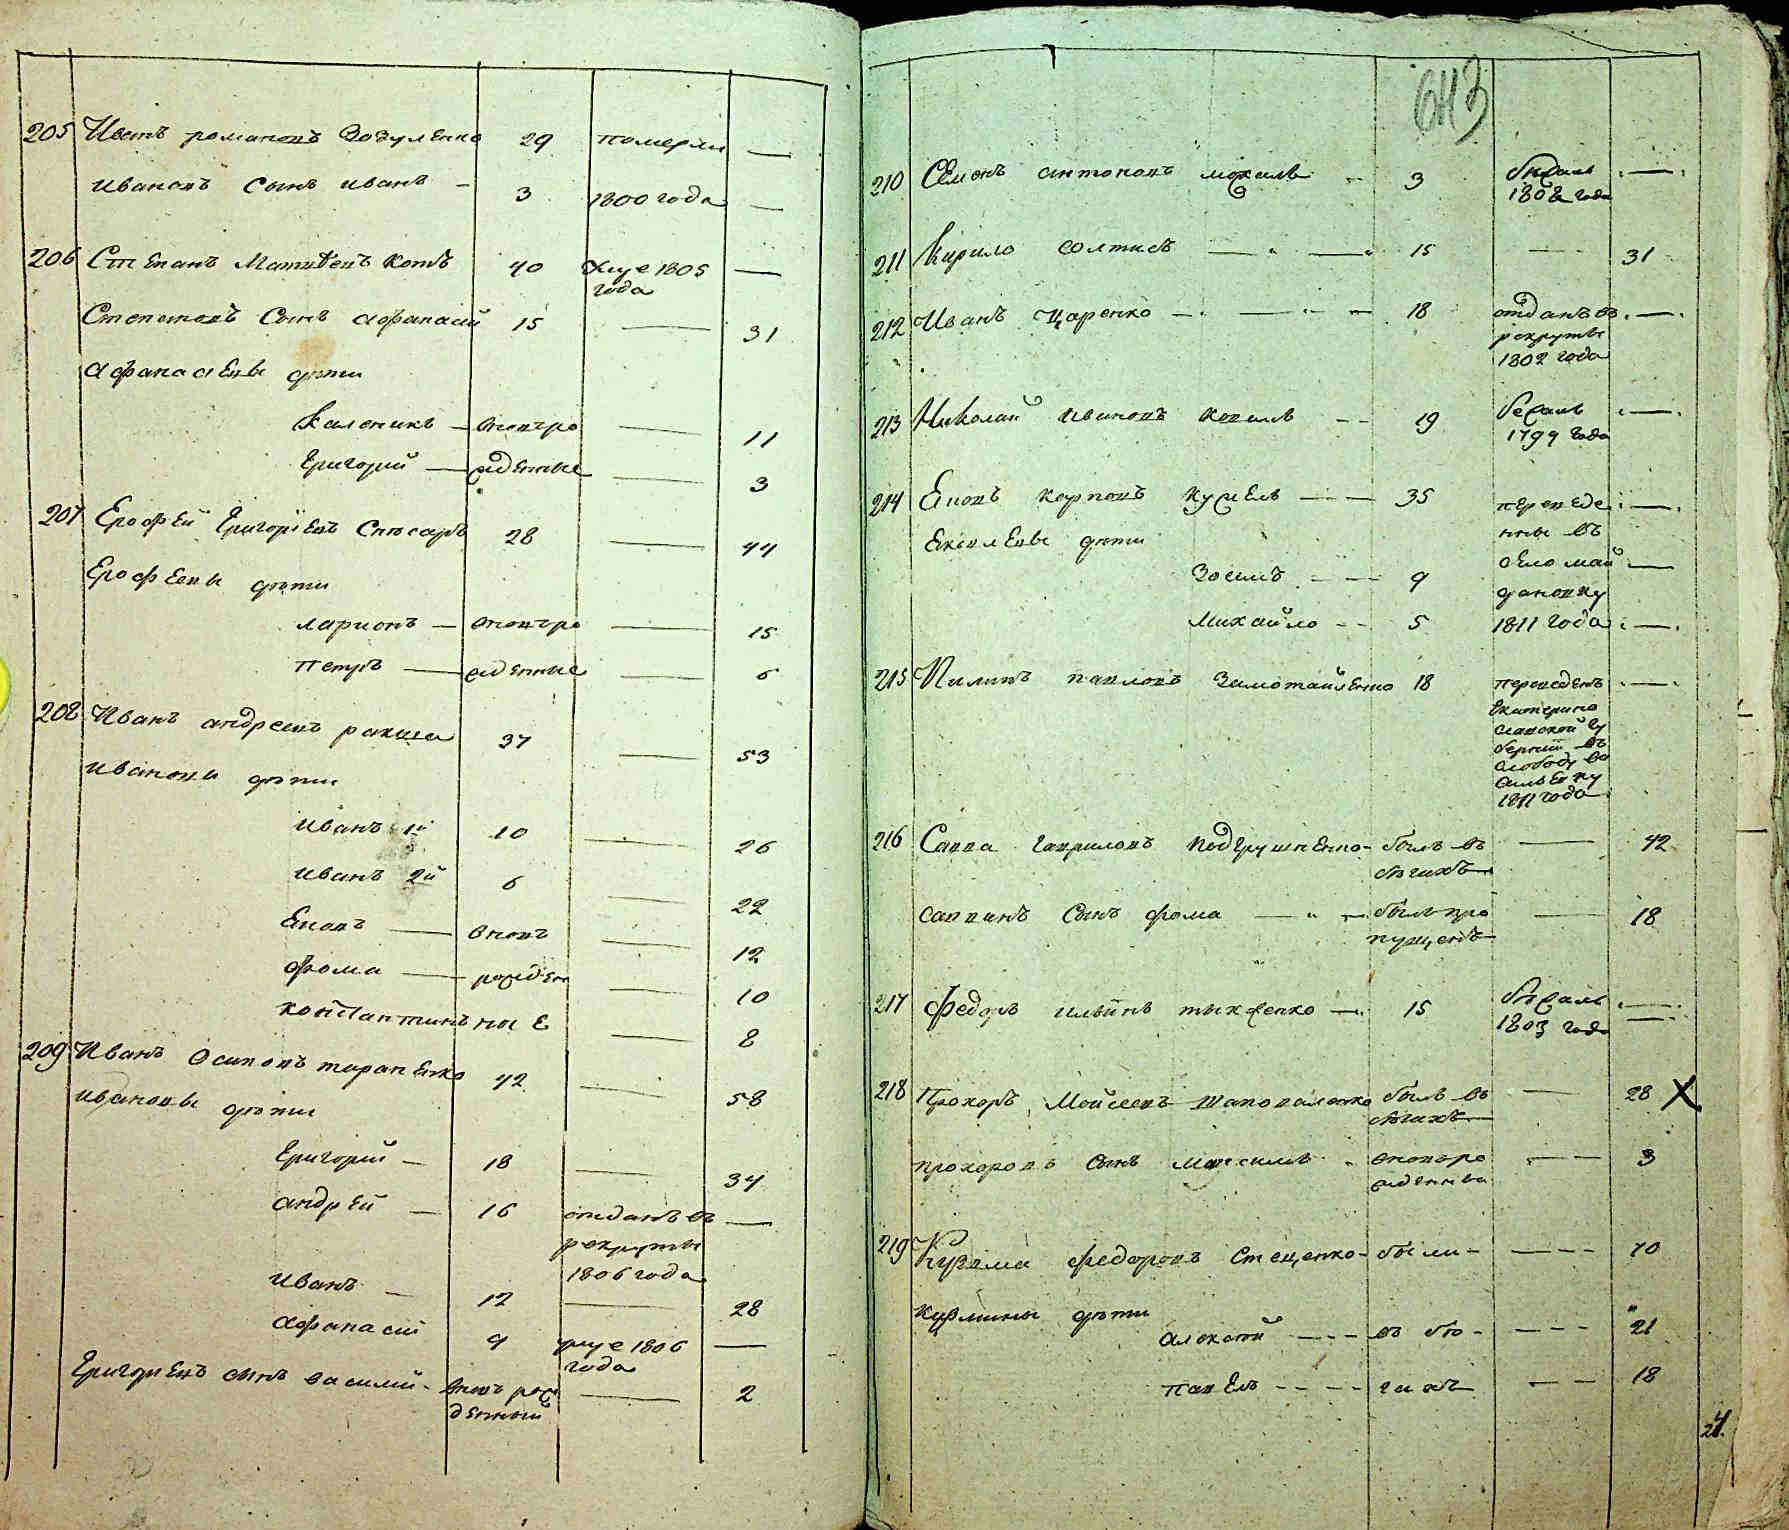 205 Иванъ романовъ Зодуленко 29 померли —
ивановъ сынъ иванъ — 3 1800 года —
206 Степанъ Матвѣевъ котъ 40 умре 1805 года —
Степановъ сынъ афанасий 15 — 31
афанасиевы дѣти
каленикъ — вновъро — 11
григорий — жденные — 3
207 Ерофей Григориевъ Слюсарь 28 — 44
Ерофеевы дѣти
ларионъ — вновъро — 15
петръ — жденные — 6
208 Иванъ андреевъ ракша 37 — 53
ивановы дѣти
иванъ 1й 10 — 26
иванъ 2й 6 — 22
Яковъ — вновъ — 12
фома — рожден — 10
константинъ ные — 8
209 Иванъ Осиповъ тараненко 42 — 58
ивановы дѣти
григорий — 18 — 34
андрей — 16 отданъ въ —
рекруты
1806 года
иванъ — 12 — 28
афанасий 9 умре 1806 —
года
григориевъ сынъ василий - вновъ рож — 2
денный
643
210 Семенъ антоновъ 3 бежалъ —
1808 года
211 Кирило солтисъ — 15 — 31
212 Иванъ Царенко — 18 отданъ въ —
рекруты
1802 года
213 Николай ивановъ коваль — 19 бежалъ —
1799 года
214 Яковъ карповъ кужель — 35 переведе —
Яковлевы дѣти нны въ
Зосимъ — 9 село май —
дановку
Михайло — 5 1811 года —
215 Пилипъ павловъ Замотайленко 18 переведенъ —
Екатерино
славской гу
бернии въ
слободу ва
сильевку
1811 года
216 Савва гавриловъ подгрушненко - былъ въ — 42
бѣгахъ
саввинъ сынъ фома — былъ про — 18
пущенъ
217 федоръ ильинъ 15 бежалъ —
1803 года
218 Прохоръ Мойсеевъ шаповаленко былъ въ — 28 X
бѣгахъ
прохоровъ сынъ максимъ вновъро — 3
жденны
219 Кузма федоровъ Стеценко - были - — 40
кузмины дѣти
алексѣй — въ бѣ - — 21
павелъ — гахъ — 18
24.